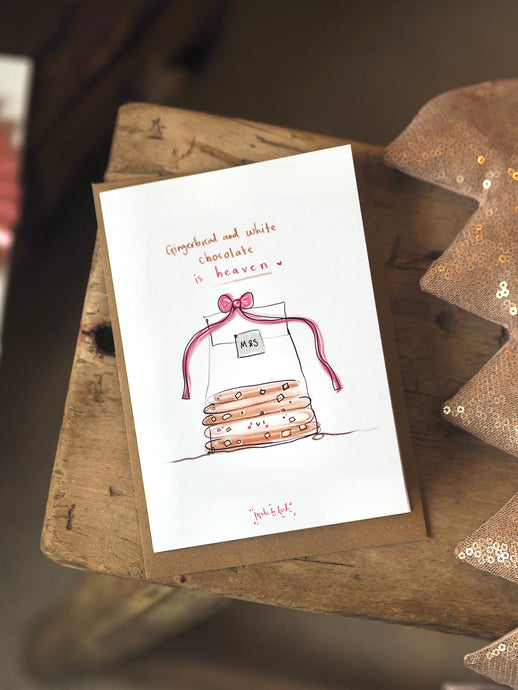 Gingerbread and white
chocolate
is heaven
M&S